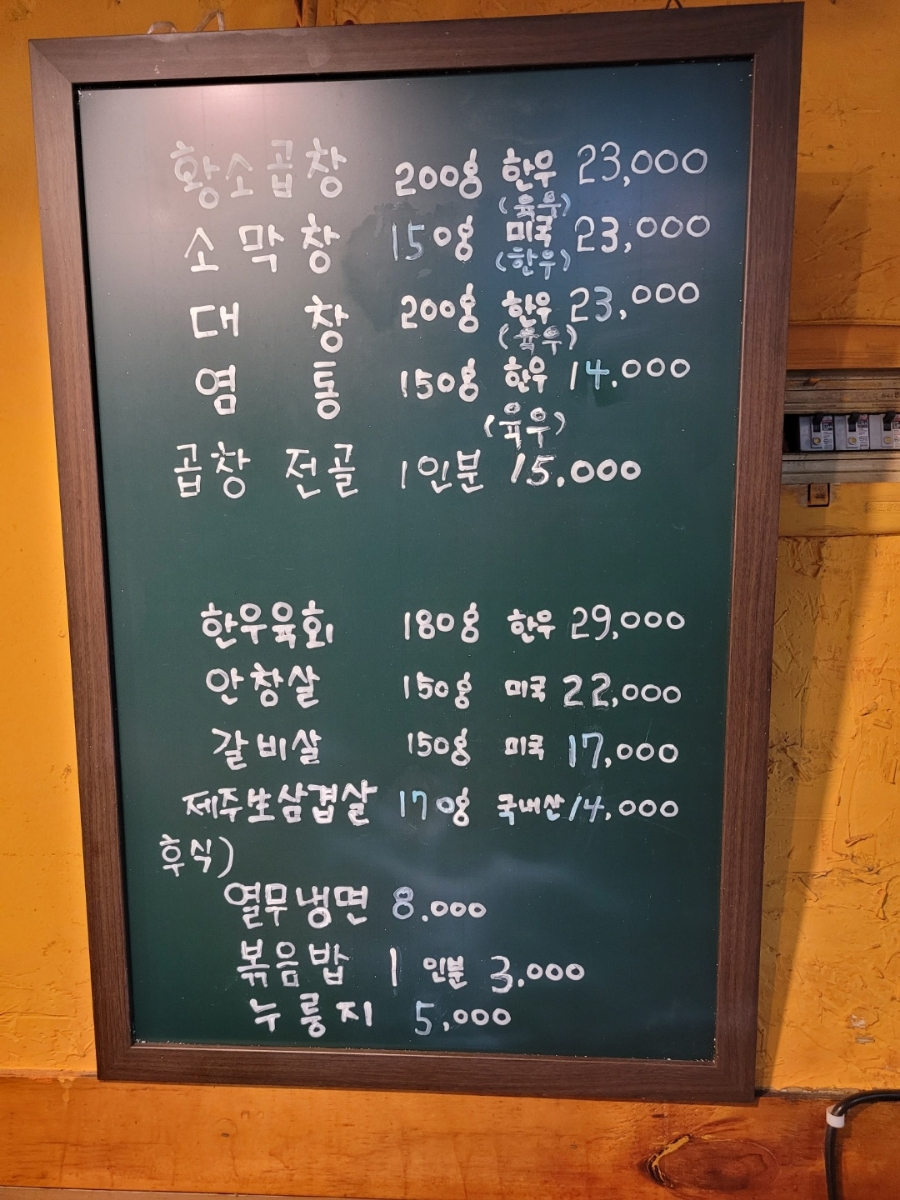 황소곱창 200g 한우 23,000
(육우)
소막창 150g 미국 23,000
(한우)
대창 200g 한우 23,000
(육우)
염통 150g 한우 14.000
(육우)
곱창 전골 1인분 15.000
한우육회 180g 한우 29,000
안창살 150g 미국 22,000
갈비살 150g 미국 17,000
제주生삼겹살 170g 국내산 14,000
후식)
열무냉면 8.000
볶음밥 1 인분 3.000
누룽지 5,000